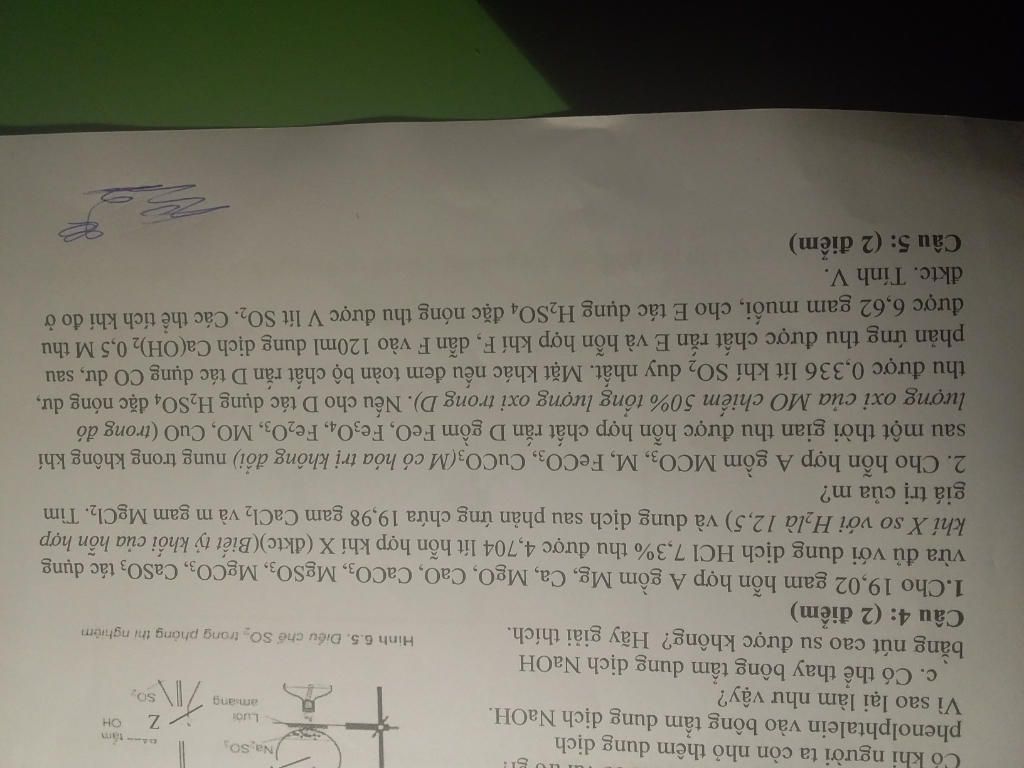 Có khi người ta còn nhỏ thêm dung dịch
phenolphtalein vào bông tẩm dung dịch NaOH.
Vì sao lại làm như vậy?
c. Có thể thay bông tẩm dung dịch NaOH
bằng nút cao su được không? Hãy giải thích.
Na₂SO₃
Lưới
amiăng
tẩm
OH
Z
SO₂
Hình 6.5. Điều chế SO₂ trong phòng thí nghiệm
Câu 4: (2 điểm)
1.Cho 19,02 gam hỗn hợp A gồm Mg, Ca, MgO, CaO, CaCO₃, MgSO₃, MgCO₃, CaSO₃ tác dụng
vừa đủ với dung dịch HCl 7,3% thu được 4,704 lít hỗn hợp khí X (đktc)(Biết tỷ khối của hỗn hợp
khí X so với H₂là 12,5) và dung dịch sau phản ứng chứa 19,98 gam CaCl₂ và m gam MgCl₂. Tìm
giá trị của m?
2. Cho hỗn hợp A gồm MCO₃, M, FeCO₃, CuCO₃(M có hóa trị không đổi) nung trong không khí
sau một thời gian thu được hỗn hợp chất rắn D gồm FeO, Fe₃O₄, Fe₂O₃, MO, CuO (trong đó
lượng oxi của MO chiếm 50% tổng lượng oxi trong D). Nếu cho D tác dụng H₂SO₄ đặc nóng dư,
thu được 0,336 lít khí SO₂ duy nhất. Mặt khác nếu đem toàn bộ chất rắn D tác dụng CO dư, sau
phản ứng thu được chất rắn E và hỗn hợp khí F, dẫn F vào 120ml dung dịch Ca(OH)₂ 0,5 M thu
được 6,62 gam muối, cho E tác dụng H₂SO₄ đặc nóng thu được V lít SO₂. Các thể tích khí đo ở
đktc. Tính V.
Câu 5: (2 điểm)